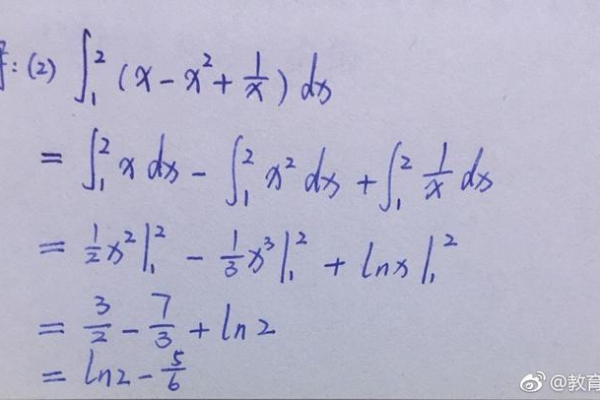 : (2) ∫₁² (x - x² + 1/x) dx
= ∫₁² x dx - ∫₁² x² dx + ∫₁² 1/x dx
= 1/2 x² |₁² - 1/3 x³ |₁² + ln x |₁²
= 3/2 - 7/3 + ln 2
= ln 2 - 5/6
@教育